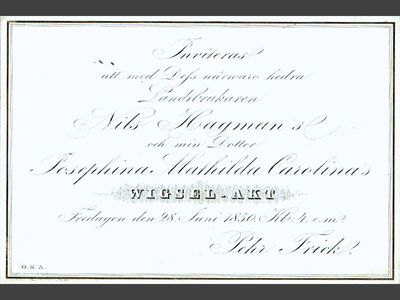 Inviteras
att med Dess närwaro hedra
Landtbrukaren
Nils Hagman's
och min Dotter
Josephina Mathilda Carolina's
WIGSEL-AKT
Fredagen den 28 Juni 1850. Kl. 4. e.m.
Pehr Frick.
O.S.A.